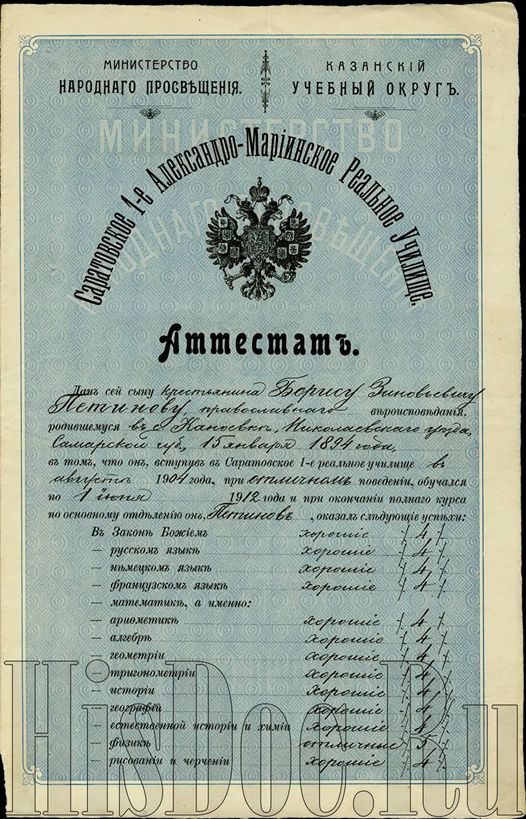 МИНИСТЕРСТВО
НАРОДНАГО ПРОСВѢЩЕНІЯ.
КАЗАНСКІЙ
УЧЕБНЫЙ ОКРУГЪ.
МИНИСТЕРСТВО
Саратовское 1-е Александро-Маріинское Реальное Училище.
Аттестатъ.
Данъ сей сыну крестьянина Борису Зиновьевичу
Петинову, православнаго вѣроисповѣданія,
родившемуся въ с. Николаевскаго уѣзда,
Самарской губ., 15 января 1894 года,
въ томъ, что онъ, вступивъ въ Саратовское 1-е реальное училище въ
августѣ 1904 года, при отличномъ поведеніи, обучался
по 1 іюня 1912 года и при окончаніи полнаго курса
по основному отдѣленію онъ, Петиновъ, оказалъ слѣдующіе успѣхи:
Въ Законѣ Божіемъ хорошіе / 4 /
— русскомъ языкѣ хорошіе / 4 /
— нѣмецкомъ языкѣ хорошіе / 4 /
— французскомъ языкѣ хорошіе / 4 /
— математикѣ, а именно:
— ариѳметикѣ хорошіе / 4 /
— алгебрѣ хорошіе / 4 /
— геометріи хорошіе / 4 /
— тригонометріи хорошіе / 4 /
— исторіи хорошіе / 4 /
— географіи хорошіе / 4 /
— естественной исторіи и химіи хорошіе
— физикѣ отличные / 5 /
— рисованіи и черченіи хорошіе / 4 /
HisDoc.Ru